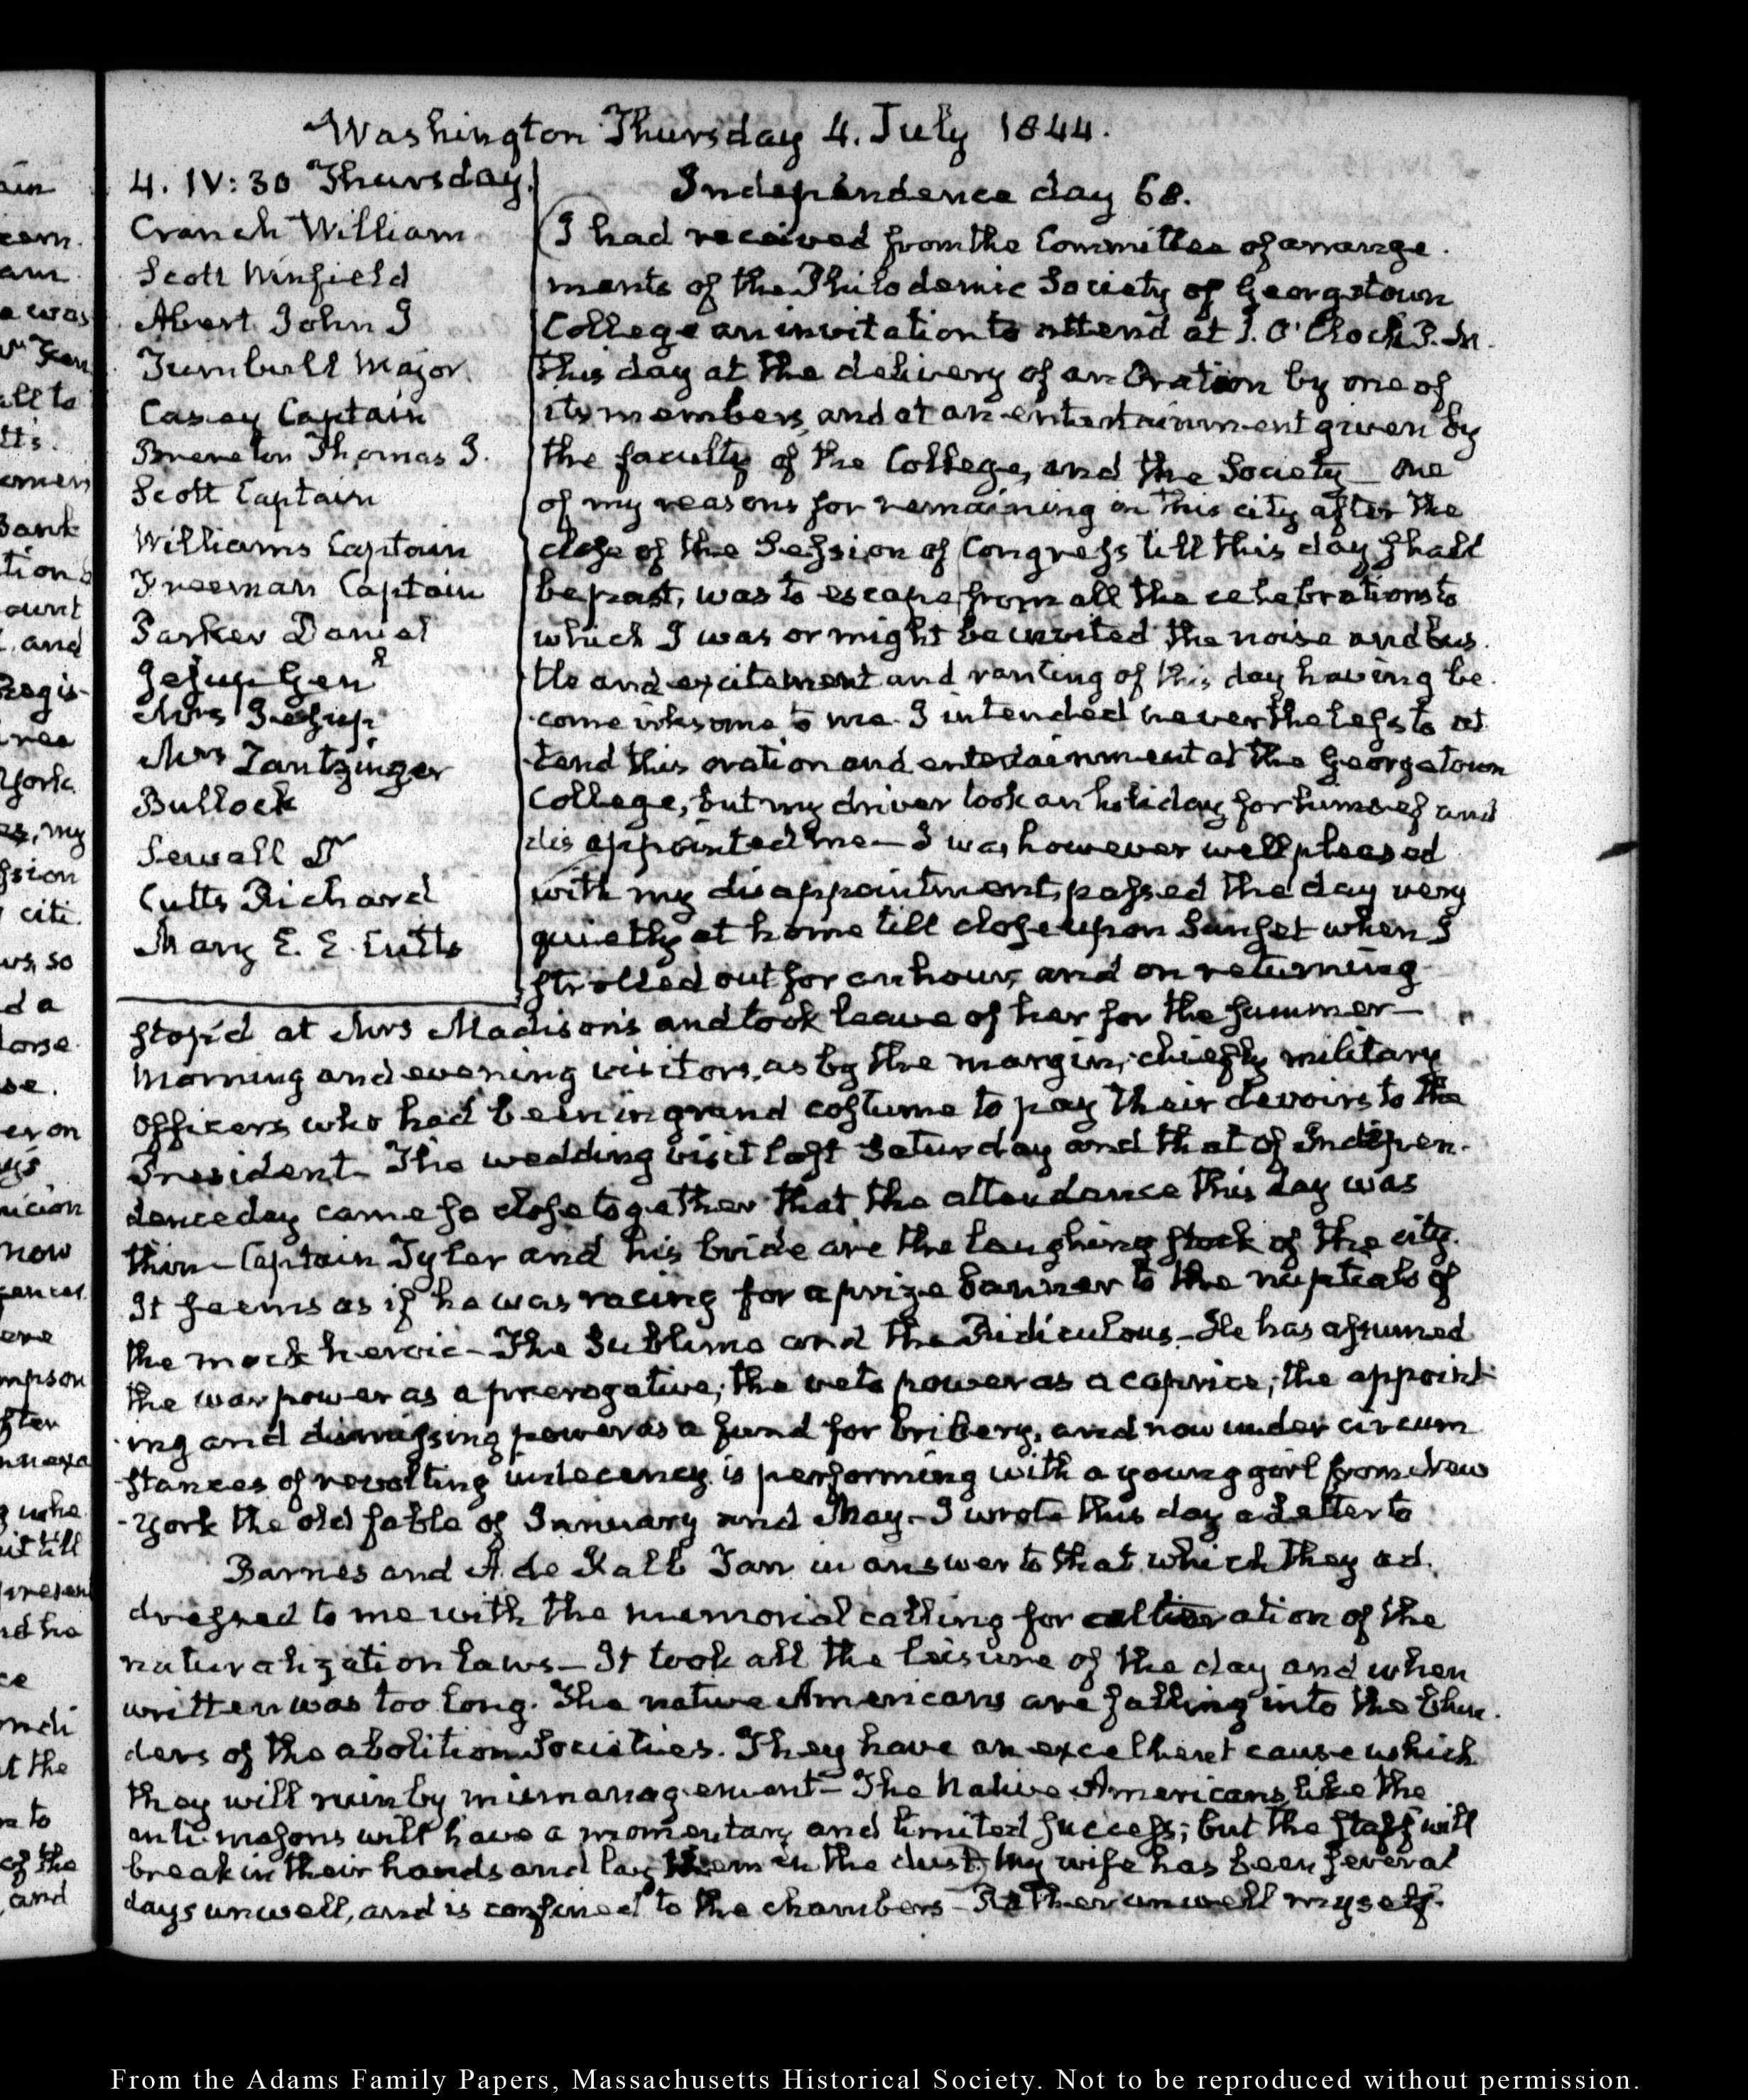 Washington Thursday 4. July 1844.
4. IV:30 Thursday.
Cranch William
Scott Winfield
Abert John J
Turnbull Major
Casey Captain
Brereton Thomas J.
Scott Captain
Williams Captain
Freeman Captain
Parker Daniel
Jesup Genl
Mrs Jesup
Mrs Zantzinger
Bullock
Sewall Dr
Cutts Richard
Mary E. E. Cutts
Independence day 68.
I had received from the Committee of arrange-
ments of the Philodemic Society of Georgetown
College an invitation to attend at 1. O'Clock P.M.
this day at the delivery of an Oration by one of
its members, and at an entertainment given by
the faculty of the College, and the Society— One
of my reasons for remaining in this city after the
close of the Session of Congress till this day shall
be past, was to escape from all the celebrations to
which I was or might be invited the noise and bus-
tle and excitement and ranting of this day having be-
come irksome to me. I intended nevertheless to at-
tend this oration and entertainment at the Georgetown
College, but my driver took an holiday for himself and
disappointed me— I was however well pleased
with my disappointment, passed the day very
quietly at home till close upon Sunset when I
strolled out for an hour, and on returning
stop'd at Mrs Madison's and took leave of her for the summer—
Morning and evening visitors, as by the margin; chiefly military
officers who had been in grand costume to pay their devoirs to the
President— The wedding visit last Saturday and that of Indepen-
dence day came so close together that the attendance this day was
thin— Captain Tyler and his bride are the laughing stock of the city.
It seems as if he was racing for a prize banner to the nuptials of
the mock heroic— The Sublime and the Ridiculous.— He has assumed
the war power as a prerogative; the veto power as a caprice; the appoint-
ing and dismissing power as a fund for bribery, and now under circum
stances of revolting indecency, is performing with a young girl from New
-York the old fable of January and May— I wrote this day a Letter to
Barnes and A. de Kalb Tarr in answer to that which they ad-
dressed to me with the memorial calling for alteration of the
naturalization laws— It took all the leisure of the day and when
written was too long. The native Americans are falling into the blun-
ders of the abolition Societies. They have an excellent cause which
they will ruin by mismanagement— The Native Americans, like the
anti-masons will have a momentary and limited success; but the staff will
break in their hands and lay them in the dust. My wife has been several
days unwell, and is confined to the chambers— Rather unwell myself.
From the Adams Family Papers, Massachusetts Historical Society. Not to be reproduced without permission.